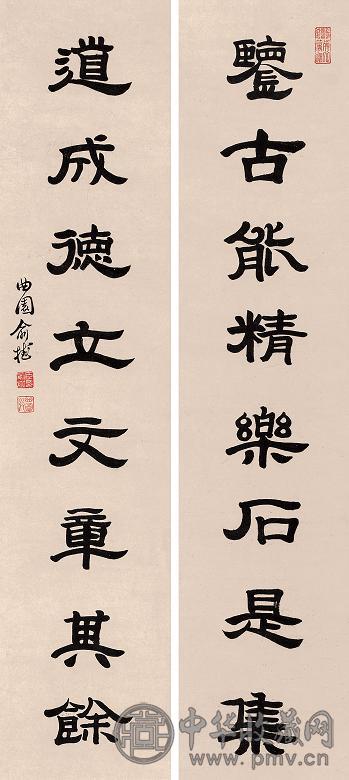 鑒古能精樂石是集
道成德立文章其餘
曲園俞樾
中华收藏网
www.pmcn.net